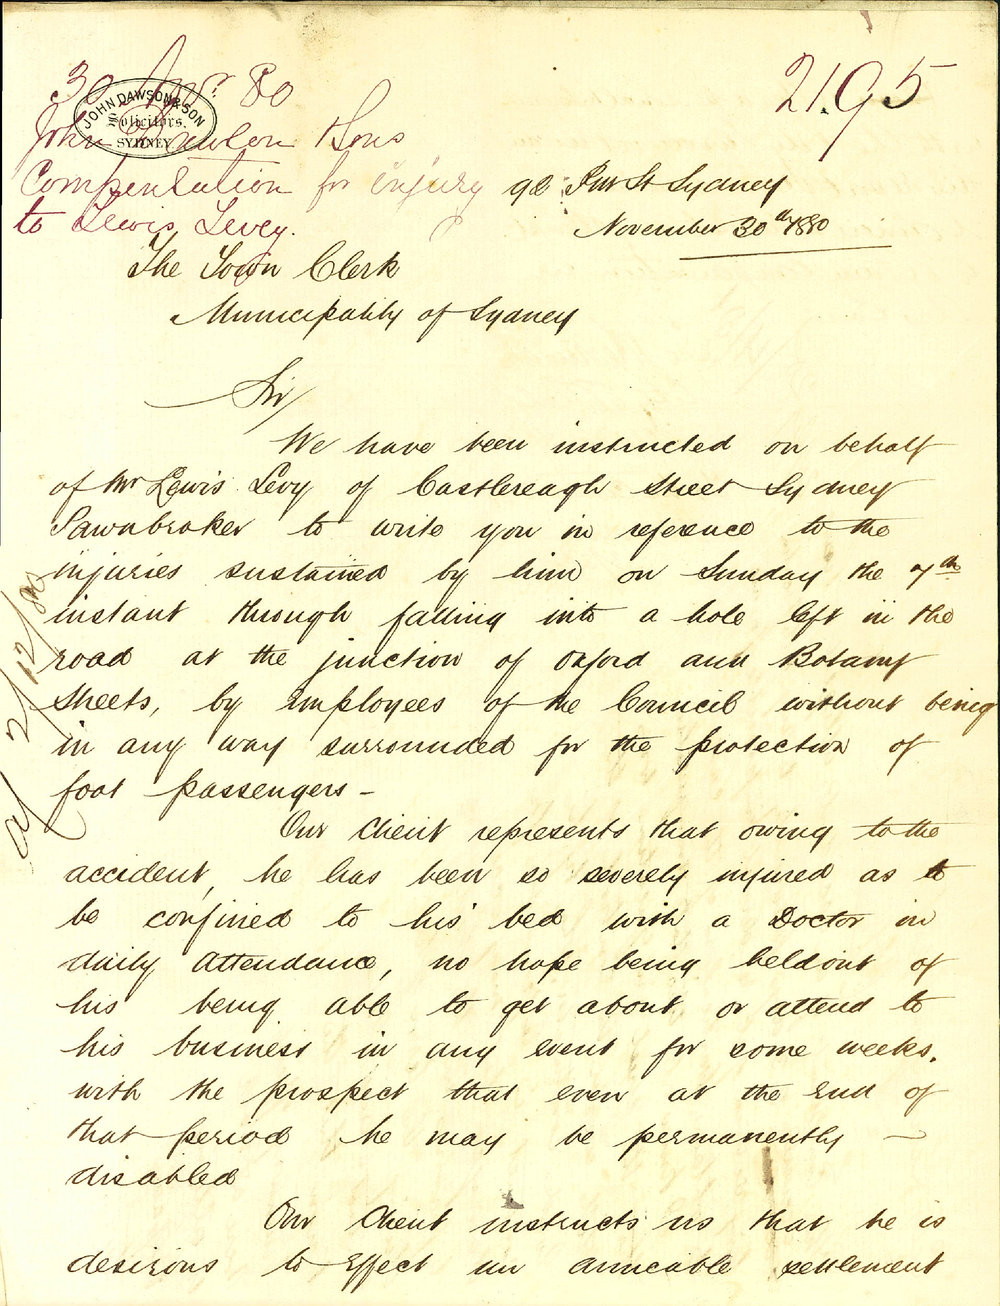 30 Nov. 80
2195
JOHN DAWSON & SON
Solicitors.
SYDNEY
John Dawson & Sons
Compensation for injury
to Lewis Levey.
92 Pitt St Sydney
November 30th 1880
The Town Clerk
Municipality of Sydney
Sir/
We have been instructed on behalf
of Mr Lewis Levy of Castlereagh Street Sydney
Pawnbroker to write you in reference to the
injuries sustained by him on Sunday the 7th
instant through falling into a hole left in the
road at the junction of Oxford and Botany
Streets, by Employees of the Council without being
in any way surrounded for the protection of
foot passengers -
Our Client represents that owing to the
accident, he has been so severely injured as to
be confined to his bed with a Doctor in
daily attendance, no hope being held out of
his being able to get about or attend to
his business in any event for some weeks.
with the prospect that even at the End of
that period he may be permanently -
disabled
Our Client instructs us that he is
desirous to Effect an amicable settlement
2/12/80